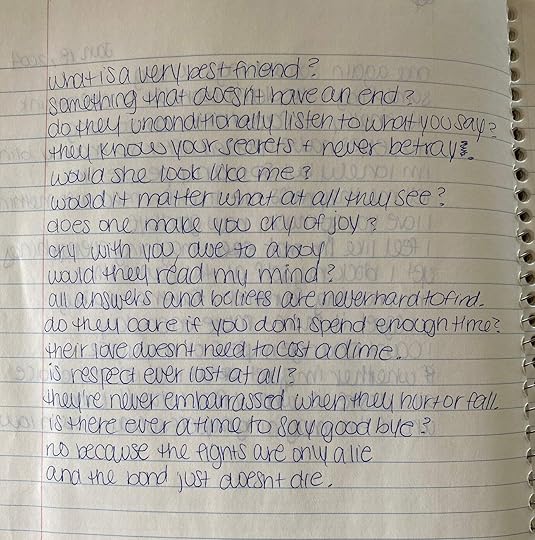 what is a very best friend?
something that doesn't have an end?
do they unconditionally listen to what you say?
they know your secrets + never betray?
would she look like me?
would it matter what at all they see?
does one make you cry of joy?
cry with you due to a boy
would they read my mind?
all answers and beliefs are never hard to find.
do they care if you don't spend enough time?
their love doesn't need to cost a dime.
is respect ever lost at all?
they're never embarrassed when they hurt or fall.
is there ever a time to say good bye?
no because the fights are only a lie
and the bond just doesn't die.